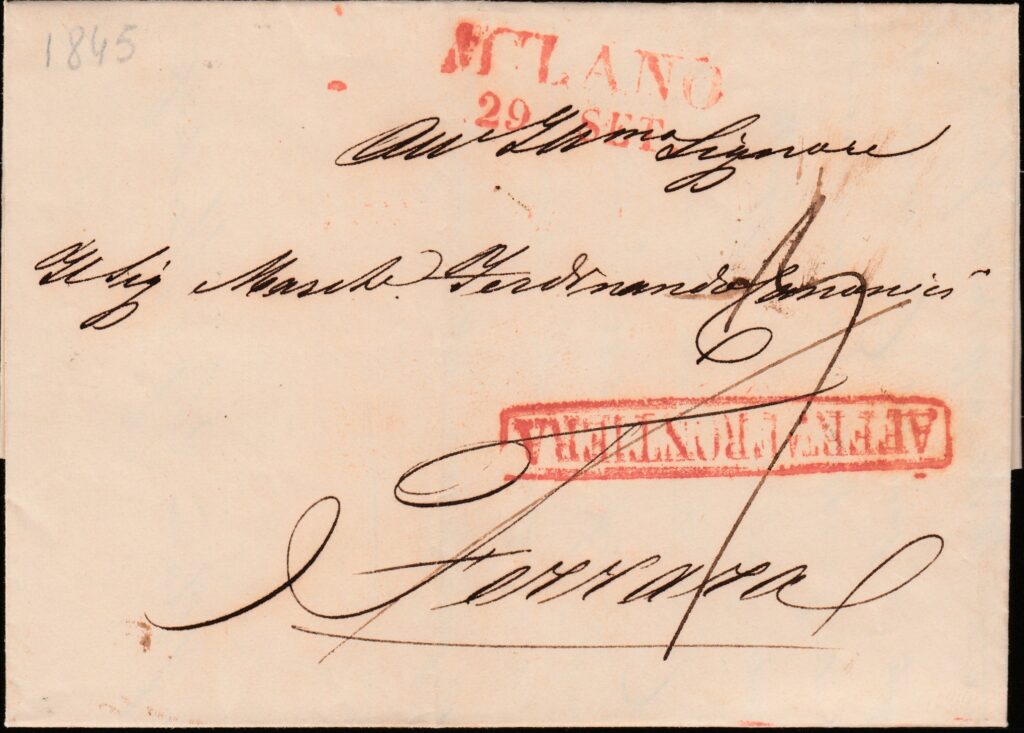 1845
MILANO
29 SET
All' Ill.mo Signore
Il Sig Marche. Ferdinando Canonici
AFFR.TA FRONTIERA
Ferrara